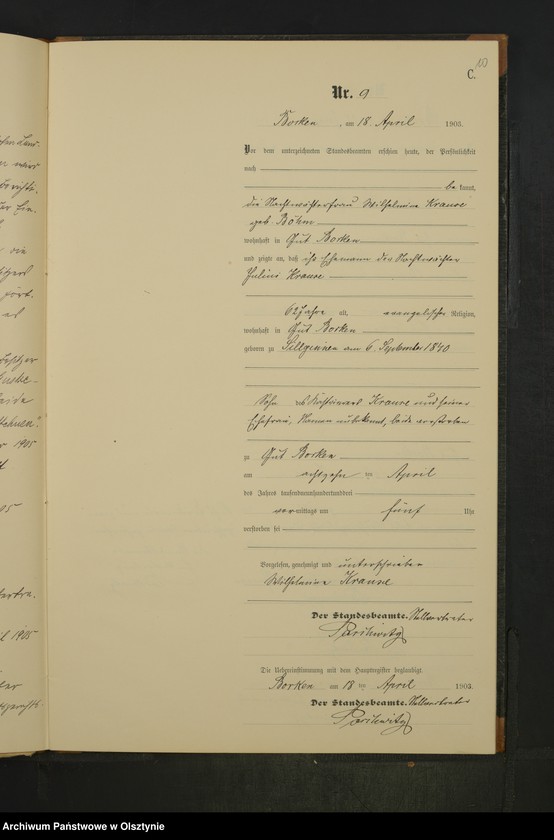 C.
Nr. 9
Borken, am 18. April 1903.
Vor dem unterzeichneten Standesbeamten erschien heute, der Persönlichkeit
nach
be kannt,
die Nachtwächterfrau Wilhelmine Krause
geb. Böhm
wohnhaft in Gut Borken
und zeigte an, daß ihr Ehemann der Nachtwächter
Julius Krause
62 Jahre alt, evangelischer Religion,
wohnhaft in Gut Borken
geboren zu am 6. September 1840
Sohn des Krause und seiner
Ehefrau, Namen unbekannt, beide verstorben
zu Gut Borken
am achtzehn ten April
des Jahres tausendneunhundertunddrei
vor mittags um fünf Uhr
verstorben sei
Vorgelesen, genehmigt und unterschrieben
Wilhelmine Krause
Der Standesbeamte. Stellvertreter
Die Uebereinstimmung mit dem Hauptregister beglaubigt
Borken am 18 ten April 1903.
Der Standesbeamte. Stellvertreter
Archiwum Państwowe w Olsztynie